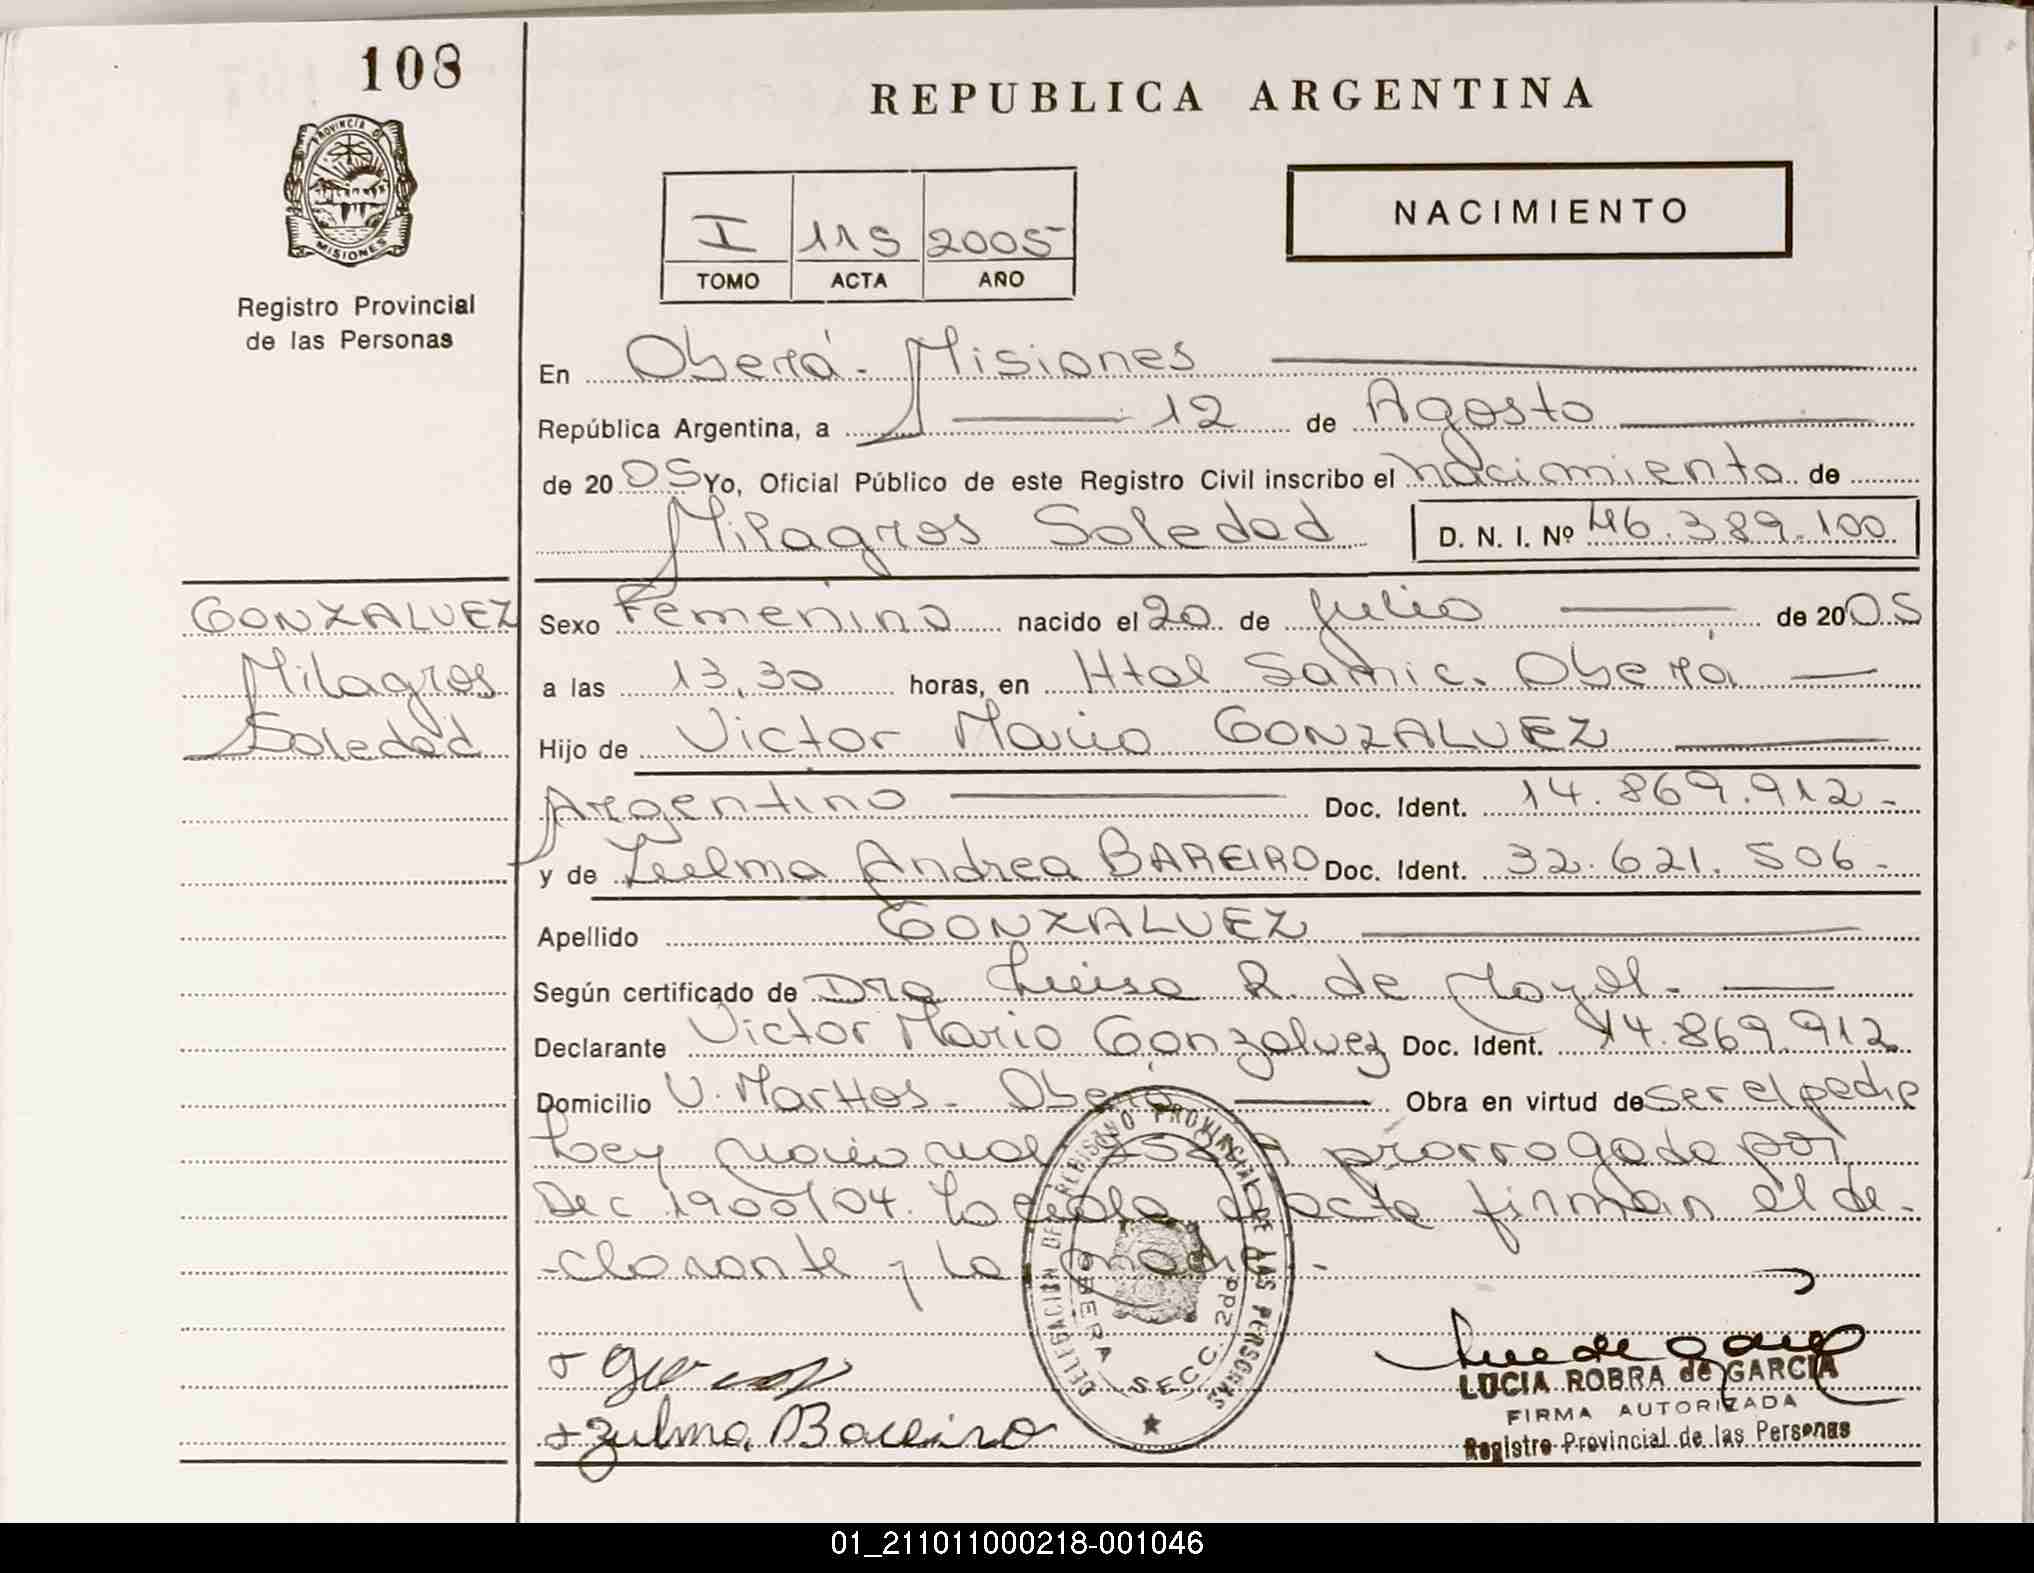 108
REPUBLICA ARGENTINA
PROVINCIA D
MISIONES
Registro Provincial
de las Personas
I 115 2005
TOMO ACTA AÑO
NACIMIENTO
En Oberá - Misiones
República Argentina, a 12 de Agosto
de 2005 Yo, Oficial Público de este Registro Civil inscribo el nacimiento de
Milagros Soledad D. N. I. Nº 46.389.100
GONZALVEZ
Milagros
Soledad
Sexo Femenino nacido el 20 de Julio de 2005
a las 13,30 horas, en Htal Samic. Oberá
Hijo de Victor Mario GONZALVEZ
Argentino Doc. Ident. 14.869.912-
y de Andrea BAREIRO Doc. Ident. 32.621.506-
Apellido GONZALVEZ
Según certificado de Dra Luisa R. de
Declarante Victor Mario Gonzalvez Doc. Ident. 14.869.912
Domicilio V. Marttos - Oberá Obra en virtud de ser el padre
Ley nacional prorrogada por
Dec 1900/04. acta firman el de-
-clarante y la madre.-
DELEGACIÓN DEL REGISTRO PROVINCIAL DE LAS PERSONAS
OBERA SECC. 2da
Zulma Bareiro
LUCIA ROBRA de GARCIA
FIRMA AUTORIZADA
Registro Provincial de las Personas
01_211011000218-001046